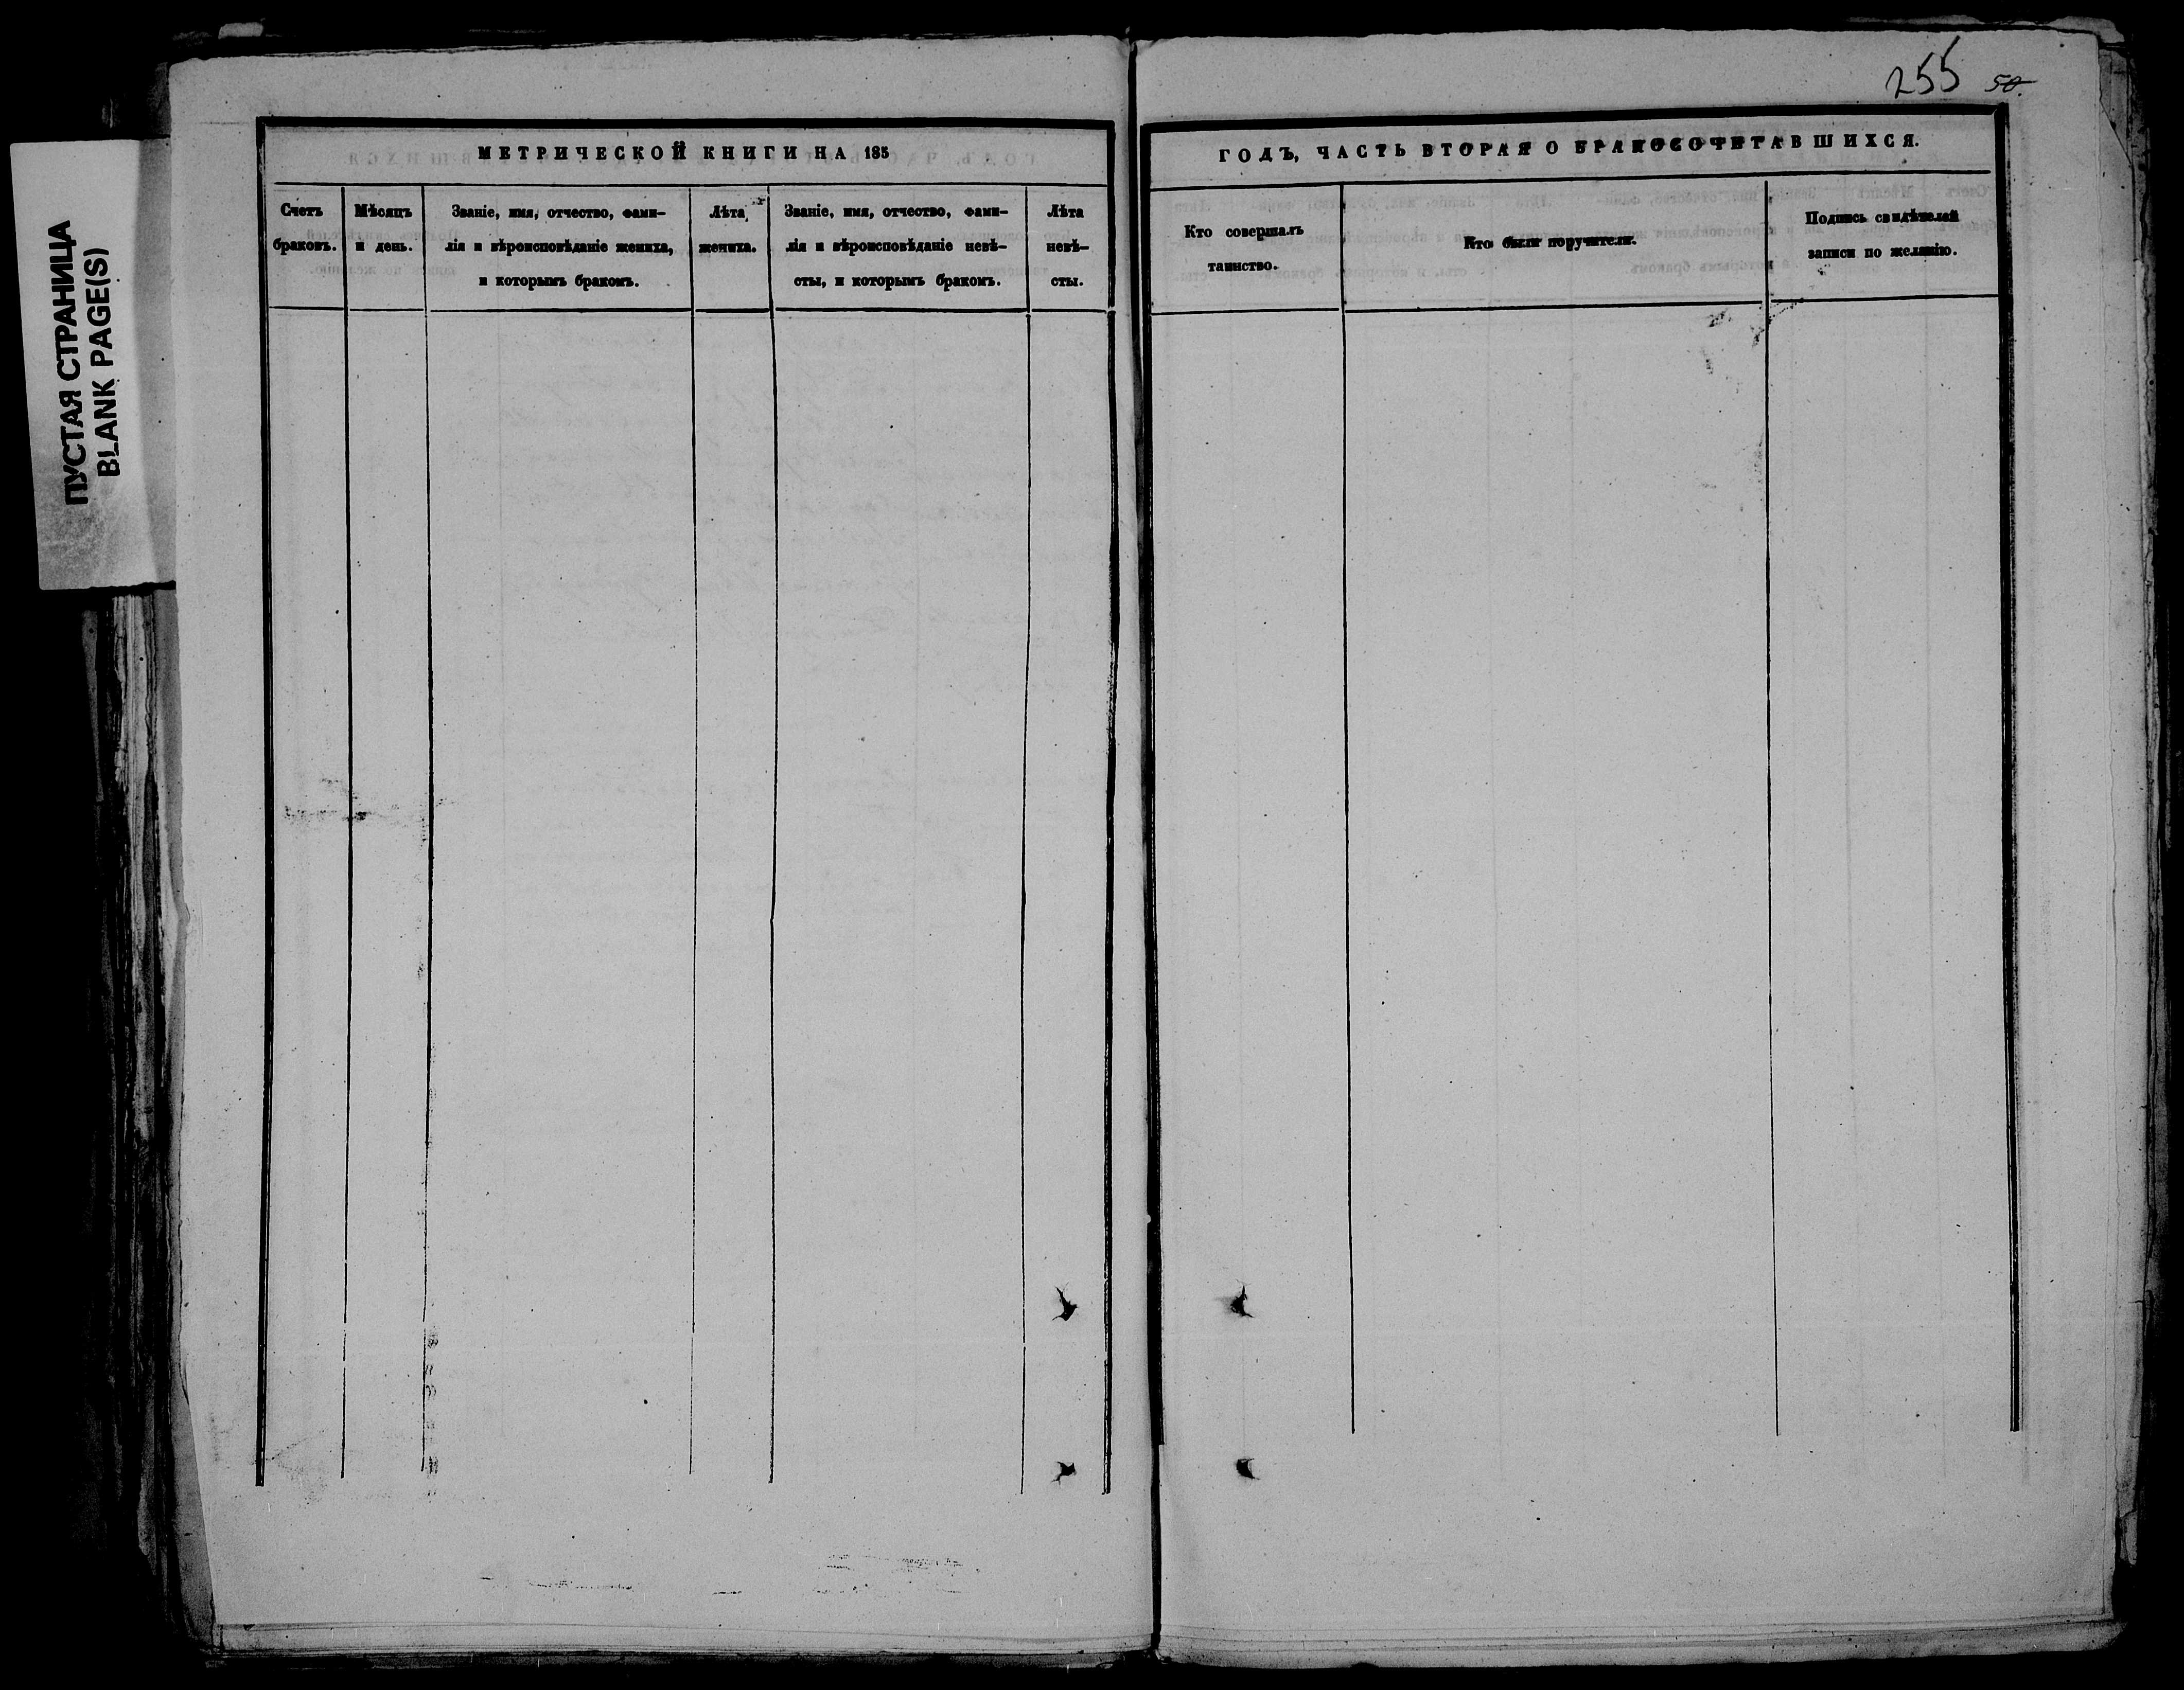 ПУСТАЯ СТРАНИЦА
BLANK PAGE(S)
МЕТРИЧЕСКОЙ КНИГИ НА 185
Счетъ
браковъ.
Мѣсяцъ
и день.
Званіе, имя, отчество, фами-
лія и вѣроисповѣданіе жениха,
и которымъ бракомъ.
Лѣта
жениха.
Званіе, имя, отчество, фами-
лія и вѣроисповѣданіе невѣ-
сты, и которымъ бракомъ.
Лѣта
невѣ-
сты.
255 50.
ГОДЪ, ЧАСТЬ ВТОРАЯ О БРАКОСОЧЕТАВШИХСЯ.
Кто совершалъ
таинство.
Кто были поручители.
Подпись свидѣтелей
записи по желанію.